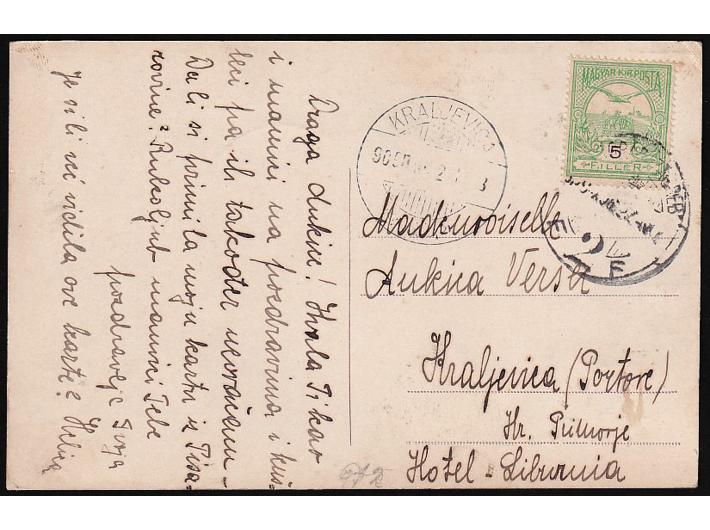 Draga Ankice! Hvala Ti kao
i mamici na pozdravima i
pa ih također uzvraćam
Da li si primila moju kartu iz Pisa-
rovine? Rukoljub mamici Tebe
pozdravlja Tvoja
Je si li ove karte?
MAGYAR KIR. POSTA
5
FILLÉR
KRALJEVICA
Mademoiselle
Ankica
Kraljevica (Portore)
Hr. Primorje
Hotel-Liburnia
972